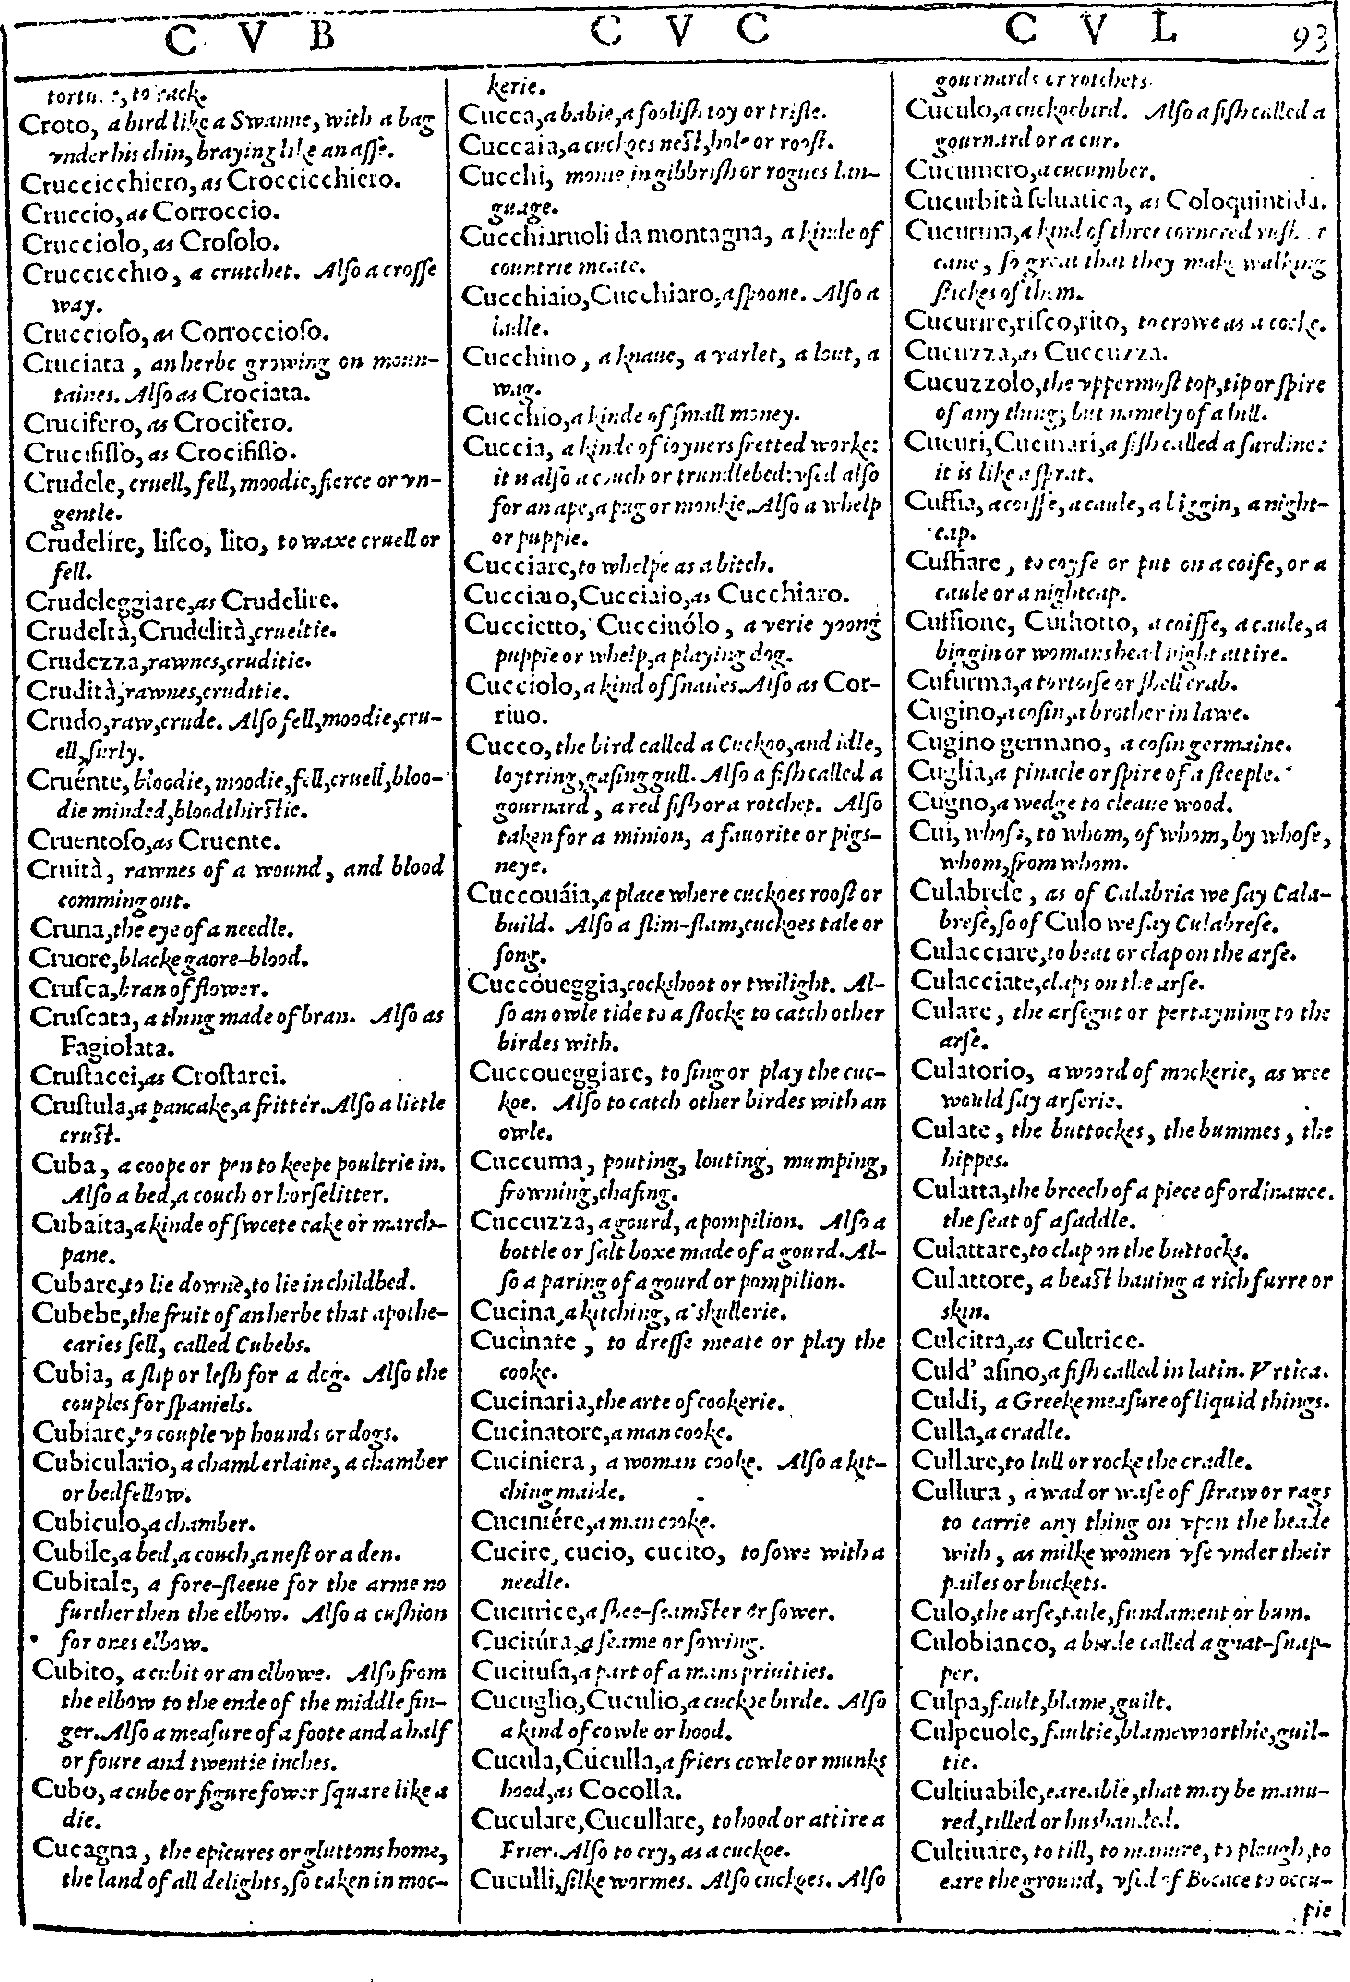 C V B
C V C
C V L
93
to racke.
Croto, a bird like a Swanne, with a bag
vnder his chin, braying like an asse.
Cruccicchiero, as Croccicchiero.
Cruccio, as Corroccio.
Crucciolo, as Crosolo.
Cruccicchio, a crutchet. Also a crosse
way.
Cruccioso, as Corroccioso.
Cruciata, an herbe growing on moun-
taines. Also as Crociata.
Crucifero, as Crocifero.
Crucifisso, as Crocifisso.
Crudele, cruell, fell, moodie, fierce or vn-
gentle.
Crudelire, lisco, lito, to waxe cruell or
fell.
Crudeleggiare, as Crudelire.
Crudeltà, Crudelità, crueltie.
Crudezza, rawnes, cruditie.
Crudità, rawnes, cruditie.
Crudo, raw, crude. Also fell, moodie, cru-
ell, surly.
Cruénte, bloodie, moodie, fell, cruell, bloo-
die minded, bloodthirstie.
Cruentoso, as Cruente.
Cruità, rawnes of a wound, and blood
comming out.
Cruna, the eye of a needle.
Cruore, blacke gaore-blood.
Crusca, bran of flower.
Cruscata, a thing made of bran. Also as
Fagiolata.
Crustacei, as Crostarei.
Crustula, a pancake, a fritter. Also a little
crust.
Cuba, a coope or pen to keepe poultrie in.
Also a bed, a couch or horselitter.
Cubaita, a kinde of sweete cake or march-
pane.
Cubare, to lie downe, to lie in childbed.
Cubebe, the fruit of an herbe that apothe-
caries sell, called Cubebs.
Cubia, a slip or lesh for a dog. Also the
couples for spaniels.
Cubiare, to couple vp hounds or dogs.
Cubiculario, a chamberlaine, a chamber
or bedfellow.
Cubiculo, a chamber.
Cubile, a bed, a couch, a nest or a den.
Cubitale, a fore-sleeue for the arme no
further then the elbow. Also a cushion
for ones elbow.
Cubito, a cubit or an elbowe. Also from
the elbow to the ende of the middle fin-
ger. Also a measure of a foote and a half
or foure and twentie inches.
Cubo, a cube or figure fower square like a
die.
Cucagna, the epicures or gluttons home,
the land of all delights, so taken in moc-
kerie.
Cucca, a babie, a foolish toy or trifle.
Cuccaia, a cuckoes nest, hole or roost.
Cucchi, monie in gibbrish or rogues lan-
guage.
Cucchiaruoli da montagna, a kinde of
countrie meate.
Cucchiaio, Cucchiaro, a spoone. Also a
ladle.
Cucchino, a knaue, a varlet, a lout, a
wag.
Cucchio, a kinde of small money.
Cuccia, a kinde of ioyners fretted worke:
it is also a couch or trundlebed: vsed also
for an ape, a pug or monkie. Also a whelp
or puppie.
Cucciare, to whelpe as a bitch.
Cucciaro, Cucciaio, as Cucchiaro.
Cuccietto, Cucciuólo, a verie yoong
puppie or whelp, a playing dog.
Cucciolo, a kind of snailes. Also as Cor-
riuo.
Cucco, the bird called a Cuckoo, and idle,
loytring, gasing gull. Also a fish called a
gournard, a red fish or a rotchet. Also
taken for a minion, a fauorite or pigs-
neye.
Cuccouáia, a place where cuckoes roost or
build. Also a flim-flam, cuckoes tale or
song.
Cuccoueggia, cockshoot or twilight. Al-
so an owle tide to a stocke to catch other
birdes with.
Cuccoueggiare, to sing or play the cuc-
koe. Also to catch other birdes with an
owle.
Cuccuma, pouting, louting, mumping,
frowning, chafing.
Cuccuzza, a gourd, a pompilion. Also a
bottle or salt boxe made of a gourd. Al-
so a paring of a gourd or pompilion.
Cucina, a kitching, a skullerie.
Cucinare, to dresse meate or play the
cooke.
Cucinaria, the arte of cookerie.
Cucinatore, a man cooke.
Cuciniera, a woman cooke. Also a kit-
ching maide.
Cuciniére, a man cooke.
Cucire, cucio, cucito, to sowe with a
needle.
Cucitrice, a shee-seamster or sower.
Cucitúra, a seame or sowing.
Cuciusa, a part of a mans priuities.
Cucuglio, Cuculio, a cuckoe birde. Also
a kind of cowle or hood.
Cucula, Cuculla, a friers cowle or munks
hood, as Cocolla.
Cuculare, Cucullare, to hood or attire a
Frier. Also to cry, as a cuckoe.
Cuculli, silke wormes. Also cuckoes. Also
gournards or rotchets.
Cuculo, a cuckoebird. Also a fish called a
gournard or a cur.
Cucumero, a cucumber.
Cucurbità seluatica, as Coloquintida.
Cucurma, a kind of three cornered rush or
cane, so great that they make walking
stickes of them.
Cucurire, risco, rito, to crowe as a cocke.
Cucuzza, as Cuccuzza.
Cucuzzolo, the vppermost top, tip or spire
of any thing, but namely of a hill.
Cucuri, Cucinari, a fish called a sardine:
it is like a sprat.
Cuffia, a coiffe, a caule, a biggin, a night-
cap.
Cuffiare, to coyfe or put on a coife, or a
caule or a nightcap.
Cuffione, Cuffiotto, a coiffe, a caule, a
biggin or womans head night attire.
Cufurma, a tortoise or shell crab.
Cugino, a cosin, a brother in lawe.
Cugino germano, a cosin germaine.
Cuglia, a pinacle or spire of a steeple.
Cugno, a wedge to cleaue wood.
Cui, whose, to whom, of whom, by whose,
whom, from whom.
Culabrese, as of Calabria we say Cala-
brese, so of Culo we say Culabrese.
Culacciare, to beat or clap on the arse.
Culacciate, claps on the arse.
Culare, the arsegut or pertayning to the
arse.
Culatorio, a woord of mockerie, as wee
would say arserie.
Culate, the buttockes, the bummes, the
hippes.
Culatta, the breech of a piece of ordinance.
the seat of a saddle.
Culattare, to clap on the buttocks.
Culattore, a beast hauing a rich furre or
skin.
Culcitra, as Cultrice.
Culd' asino, a fish called in latin. Vrtica.
Culdi, a Greeke measure of liquid things.
Culla, a cradle.
Cullare, to lull or rocke the cradle.
Cullura, a wad or wase of straw or rags
to carrie any thing on vpon the heade
with, as milke women vse vnder their
pailes or buckets.
Culo, the arse, taile, fundament or bum.
Culobianco, a birde called a gnat-snap-
per.
Culpa, fault, blame, guilt.
Culpeuole, faultie, blameworthie, guil-
tie.
Cultiuabile, eareable, that may be manu-
red, tilled or husbanded.
Cultiuare, to till, to manure, to plough, to
eare the ground, vsed of Bocace to occu-
pie